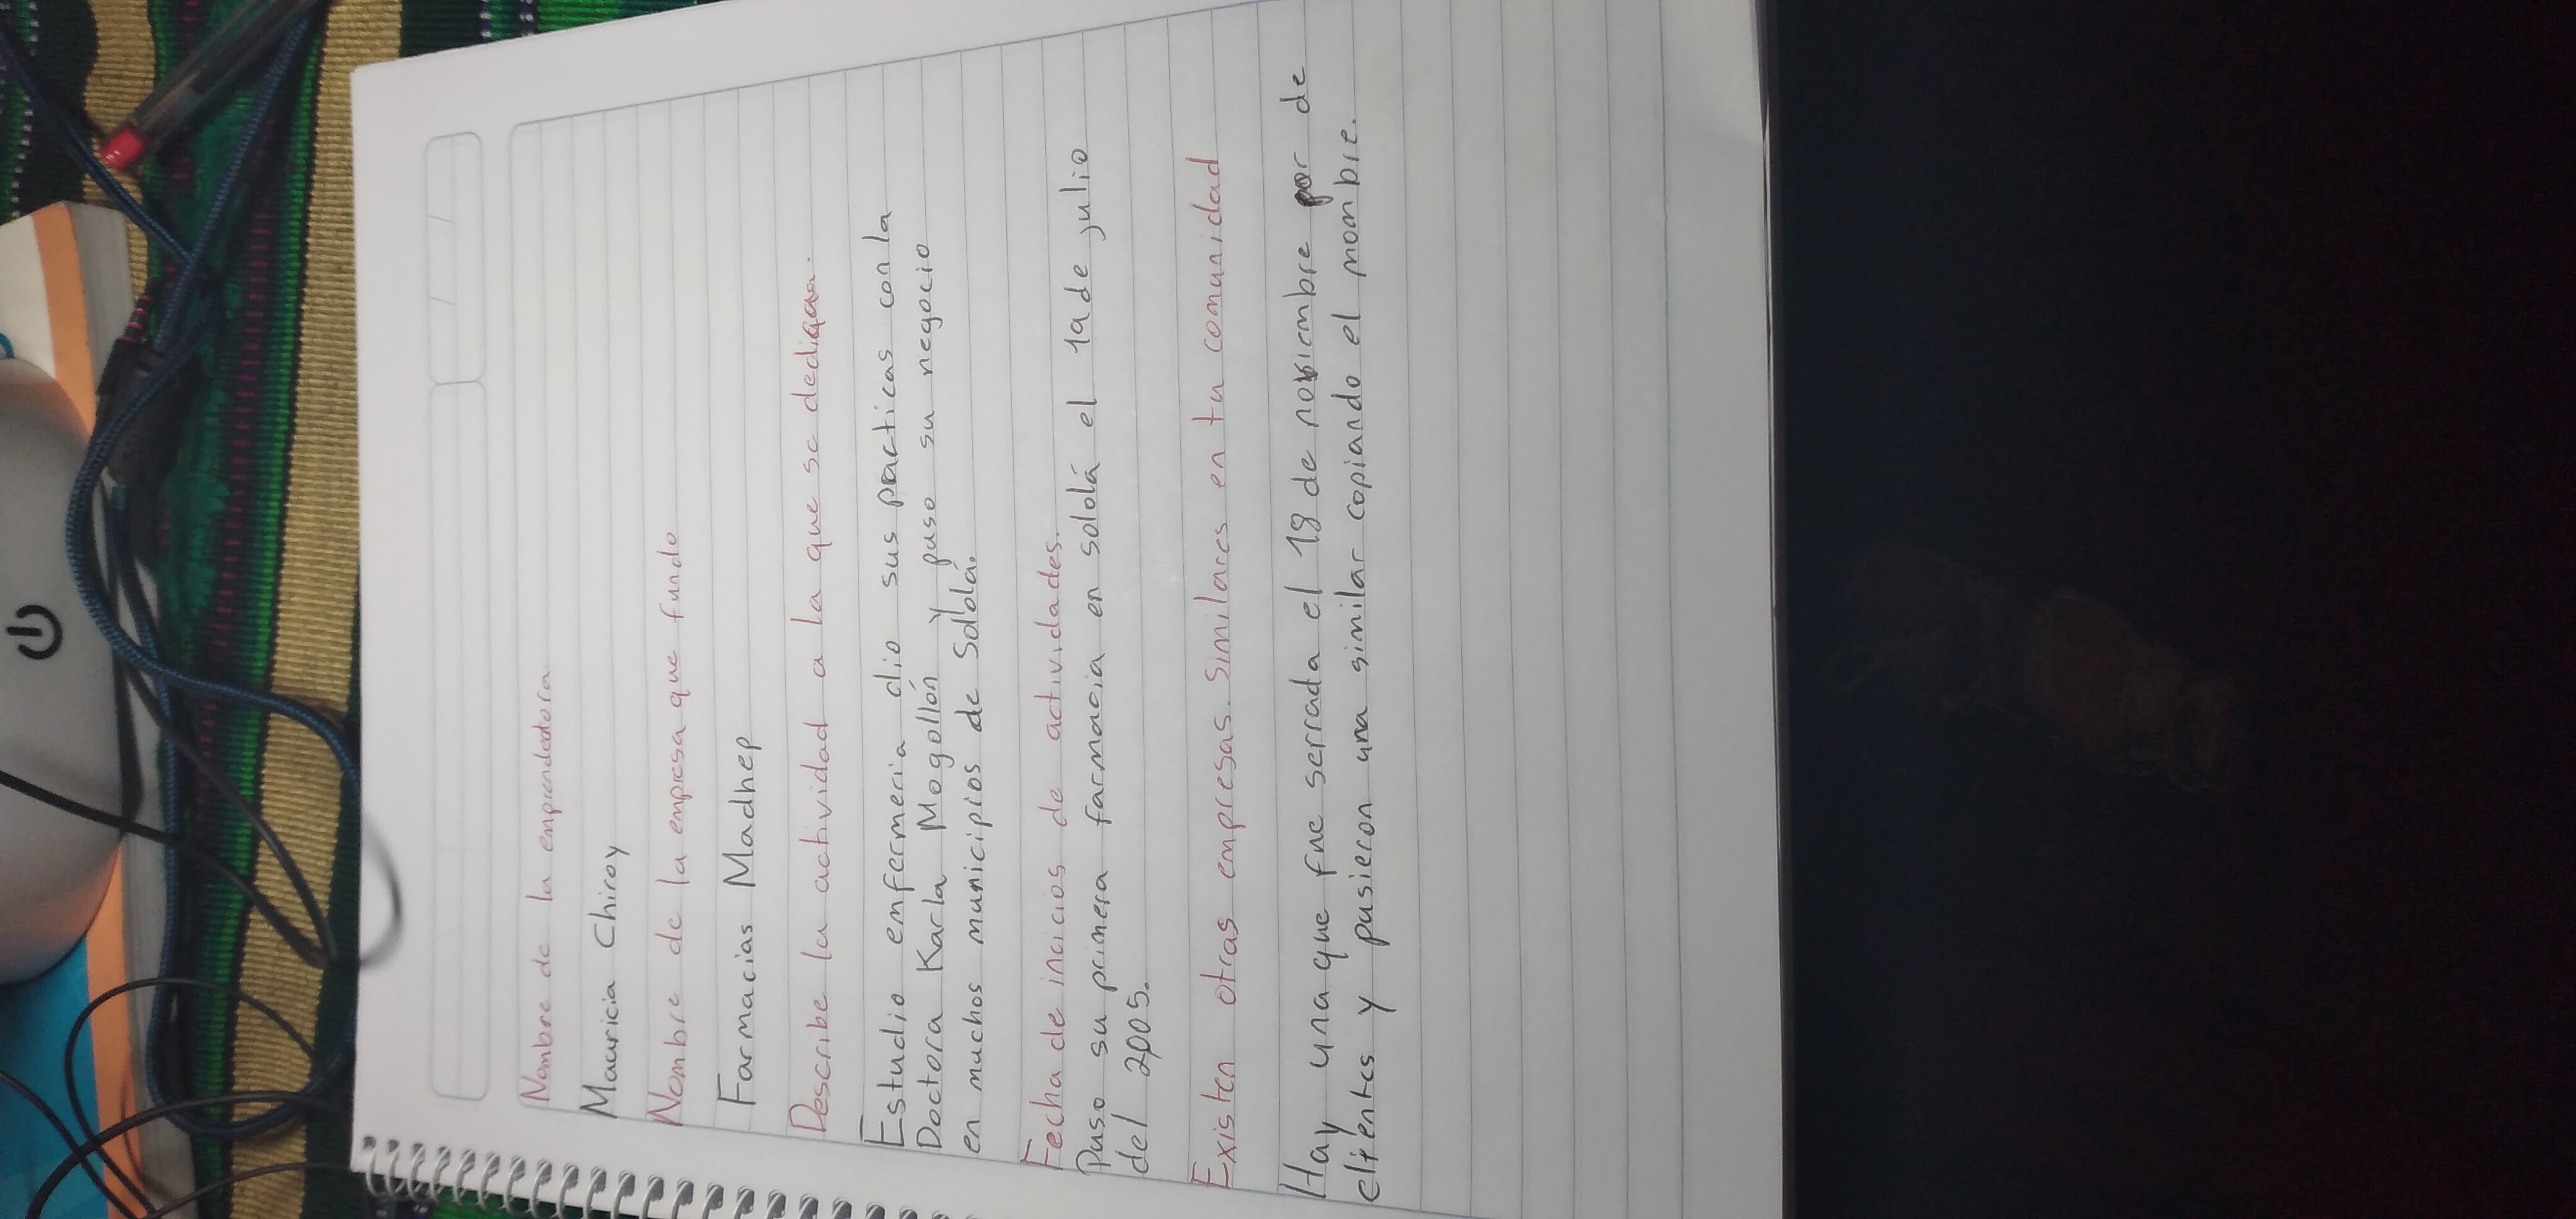 Nombre de la emprendedora
Mauricia Chiroy
Nombre de la empresa que fundo
Farmacias Madhep
Describe la actividad a la que se dedica.
Estudio enfermeria dio sus practicas con la
Doctora Karla Mogollón y puso su negocio
en muchos municipios de Sololá.
Fecha de inicios de actividades.
Puso su primera farmacia en sololá el 1a de julio
del 2005.
Existen otras empresas similares en tu comunidad
Hay una que fue serrada el 18 de noviembre por de
clientes y pusieron una similar copiando el nombre.